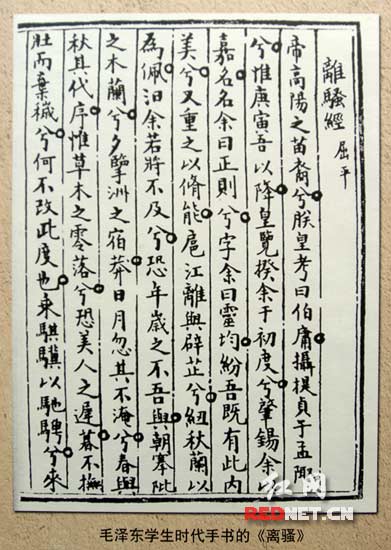 離騷經 屈平
帝高陽之苗裔兮朕皇考曰伯庸攝提貞于孟陬
兮惟庚寅吾以降皇覽揆余于初度兮肇錫余
嘉名名余曰正則兮字余曰靈均紛吾既有此內
美兮又重之以脩能扈江離與辟芷兮紉秋蘭以
為佩汩余若將不及兮恐年歲之不吾與朝搴阰
之木蘭兮夕擥洲之宿莽日月忽其不淹兮春與
秋其代序惟草木之零落兮恐美人之遲暮不撫
壯而棄穢兮何不改此度也乘騏驥以馳騁兮來
红网
毛泽东学生时代手书的《离骚》